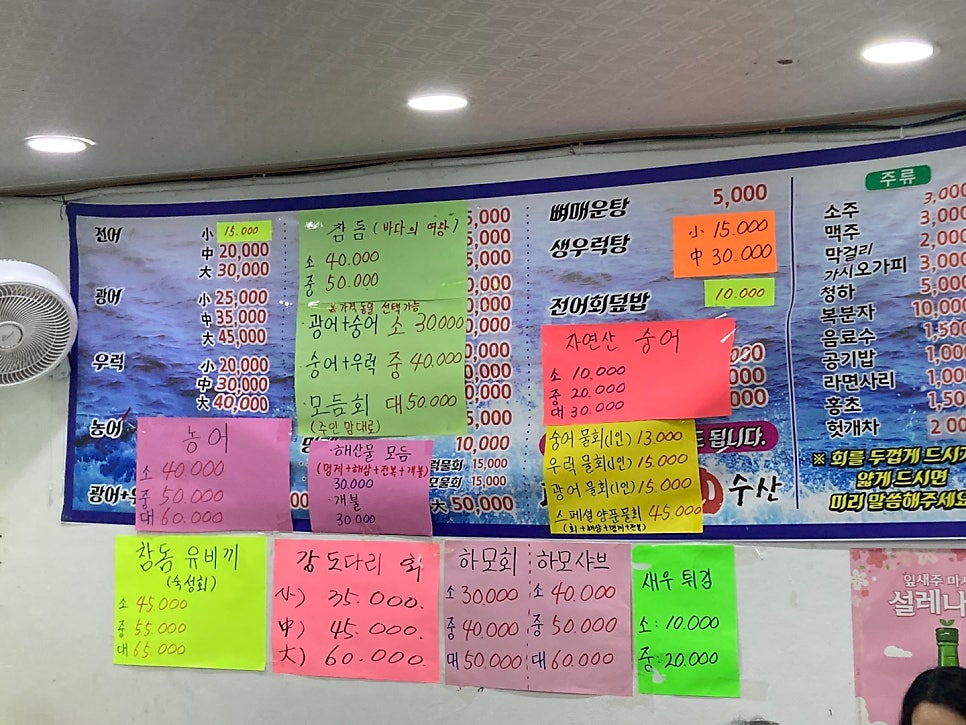 전어
小 15.000
中 20,000
大 30,000
광어
小 25,000
中 35,000
大 45,000
우럭
小 20,000
中 30,000
大 40,000
농어
농어
소 40.000
중 50.000
대 60.000
참돔 (바다의 여왕)
소 40.000
중 50.000
※가격동일 선택가능
·광어+숭어 소 30000
숭어+우럭 중 40.000
·모듬회 대 50.000
(주인 맘대로)
10,000
15,000
15,000
大 50,000
·해산물 모듬
(멍게+해삼+전복+개불)
30.000
·개불
30.000
뼈매운탕 5,000
생우럭탕
小 15.000
中 30.000
전어회덮밥 10.000
자연산 숭어
소 10.000
중 20.000
대 30.000
됩니다.
수산
숭어 물회(1인) 13.000
우럭 물회(1인) 15.000
광어 물회(1인) 15.000
스페셜양푼물회 45.000
(회+해삼+멍게+전복)
주류
소주 3,000
맥주 3,000
막걸리 2,000
가시오가피 3,000
청하 5,000
복분자 10,000
음료수 1,500
공기밥 1,000
라면사리 1,000
홍초 1,500
헛개차
※ 회를 두껍게 드시거
얇게 드시면
미리 말씀해주세요
참돔 유비끼
(숙성회)
소 45.000
중 55.000
대 65.000
감도다리 회
小) 35.000.
中) 45.000.
大) 60.000.
하모회
소 30.000
중 40.000
대 50.000
하모샤브
소 40.000
중 50.000
대 60.000
새우 튀김
소: 10.000
중: 20.000
잎새주 마시
설레나